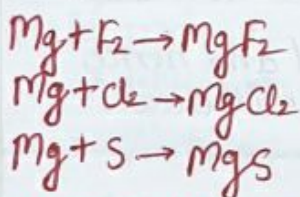 Mg+F2→MgF2
Mg+Cl2→MgCl2
Mg+S→MgS